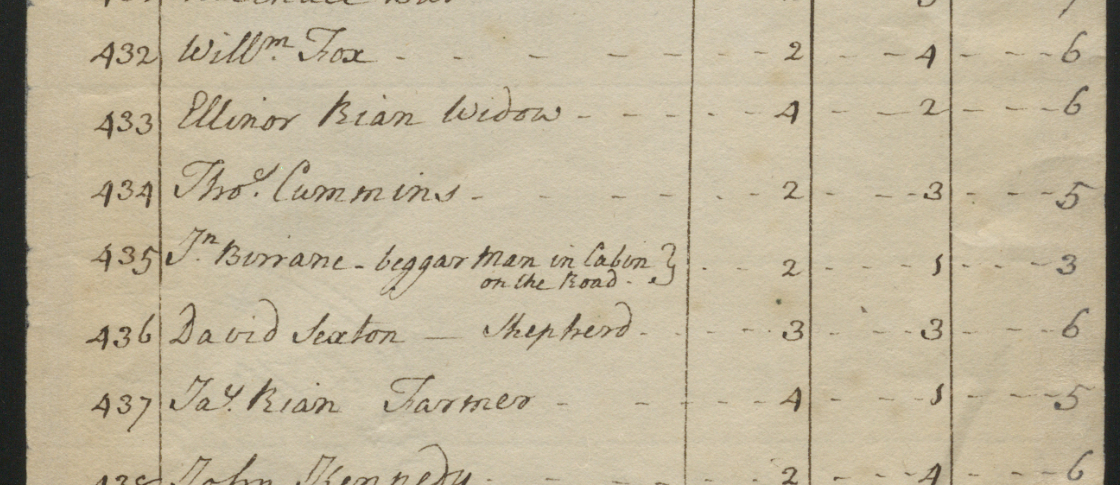 432 Will.m Fox - - - - - 2 - - 4 - - - 6
433 Ellinor Rian Widow - - - - - 4 - - 2 - - - 6
434 Tho.s Cummins - - - - - 2 - - 3 - - - 5
435 J.n Birrane - beggar man in Cabin } - - - 2 - - 1 - - - 3
on the Road.
436 David Sexton — Shepherd - - - - 3 - - 3 - - - 6
437 Ja.s Rian Farmer - - - - - 4 - - 1 - - - 5
438 John Kennedy - - - - - 2 - - 4 - - - 6